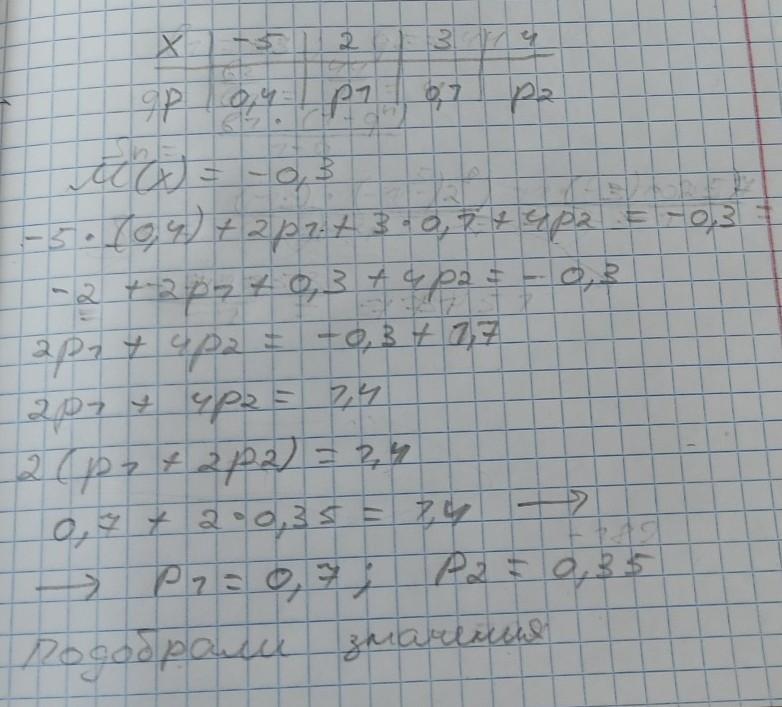 x | -5 | 2 | 3 | 4
p | 0,4 | p1 | 0,1 | p2
M(x) = -0,3
-5 · (0,4) + 2p1 + 3·0,1 + 4p2 = -0,3 =
-2 + 2p1 + 0,3 + 4p2 = -0,3
2p1 + 4p2 = -0,3 + 1,7
2p1 + 4p2 = 1,4
2(p1 + 2p2) = 1,4
0,7 + 2·0,35 = 1,4 →
→ p1 = 0,7; p2 = 0,35
подобрали значения